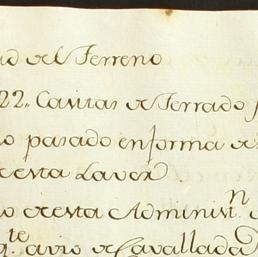 ad del Terreno
22., Casitas de Terrado
o pasado en forma de
de esta Lavor.
o de esta Administ.n
q.te avio de Cavallada